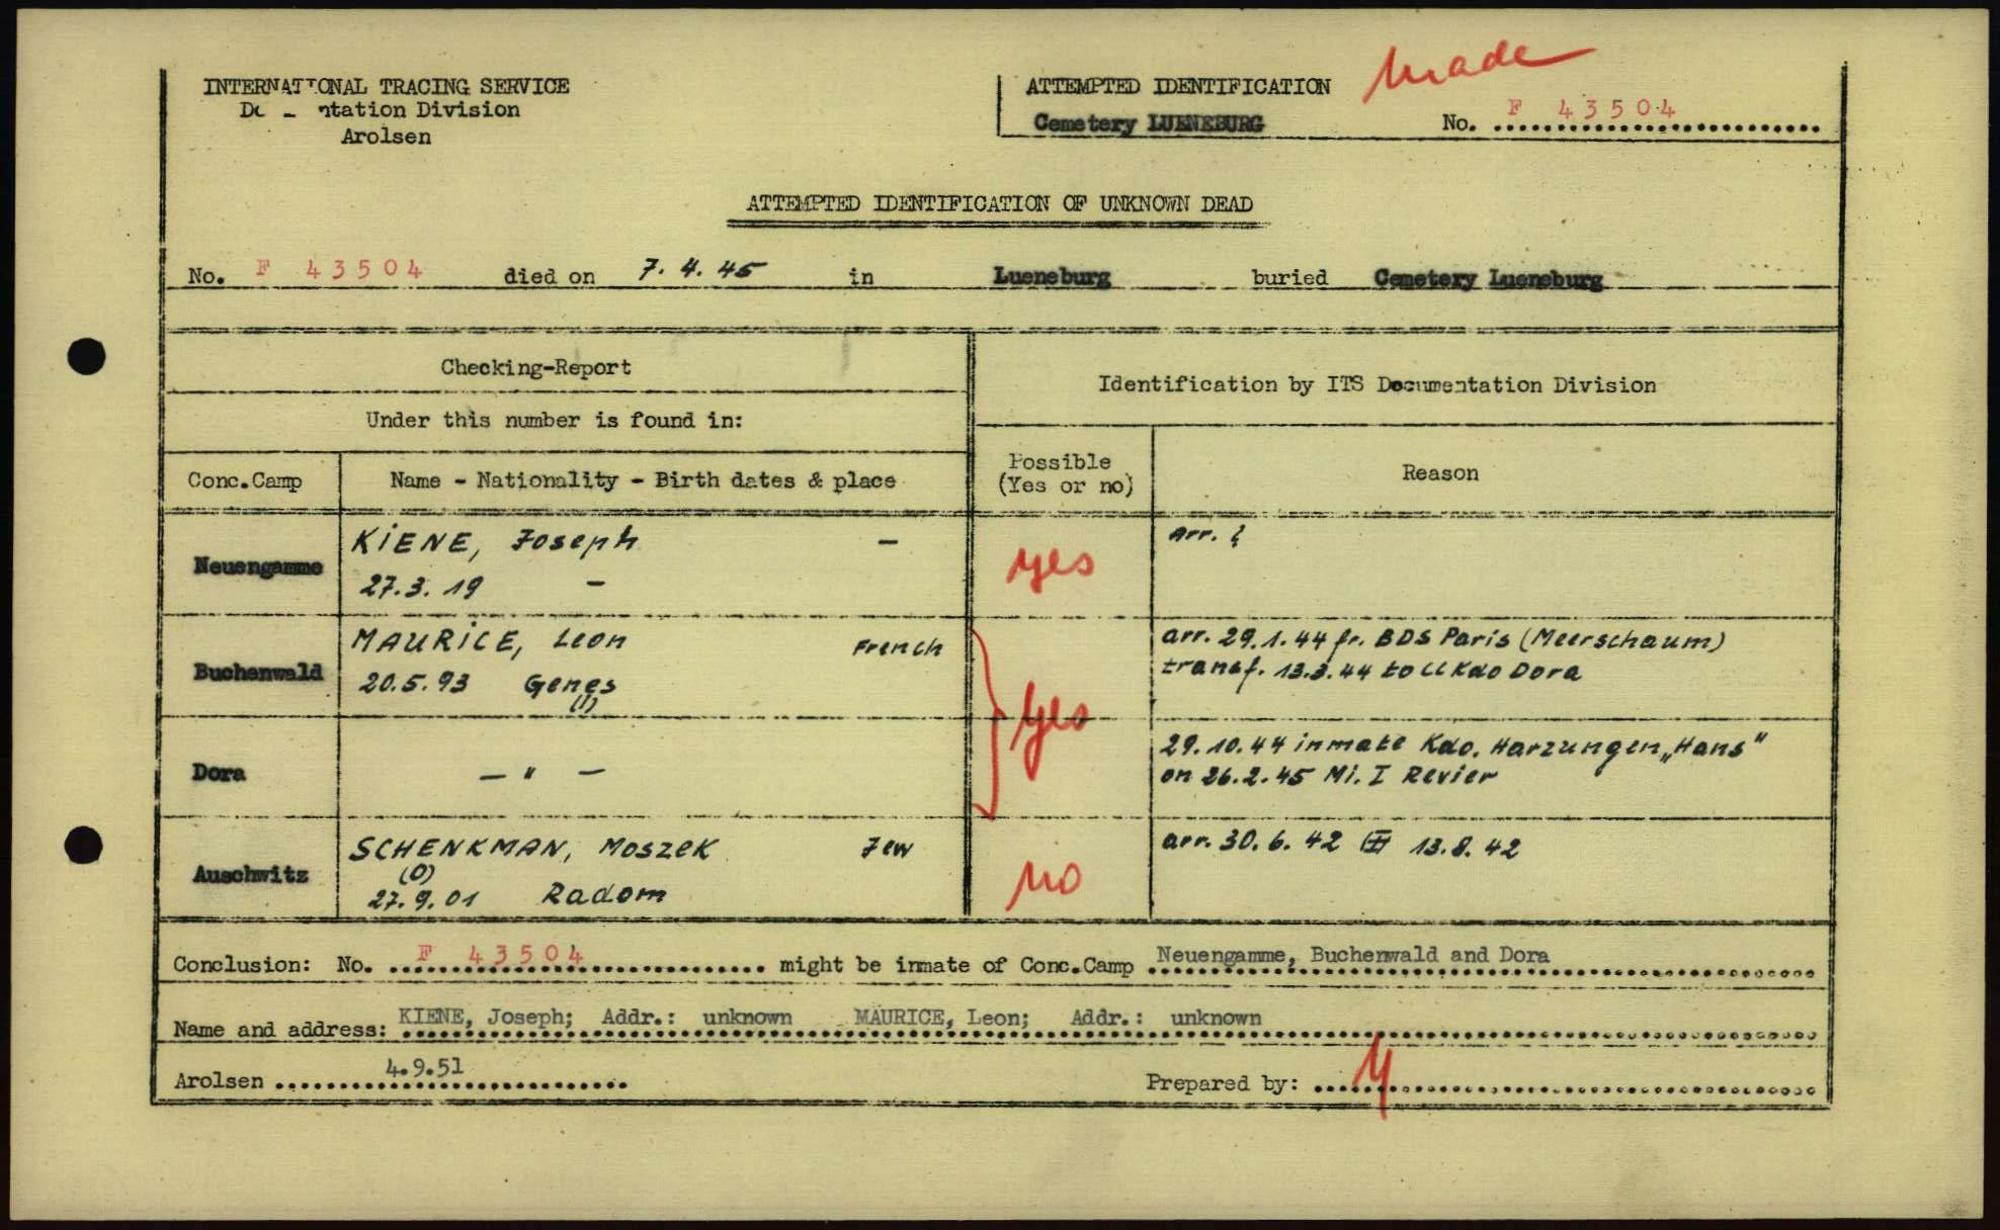 INTERNATIONAL TRACING SERVICE
Documentation Division
Arolsen
ATTEMPTED IDENTIFICATION
made
Cemetery LUENEBURG
No. F 43504
ATTEMPTED IDENTIFICATION OF UNKNOWN DEAD
No. F 43504 died on 7. 4. 45 in Lueneburg buried Cemetery Lueneburg
Checking-Report
Identification by ITS Documentation Division
Under this number is found in:
Conc.Camp
Name - Nationality - Birth dates & place
Possible
(Yes or no)
Reason
Neuengamme
KIENE, Joseph -
27.3. 19 -
yes
arr. ?
Buchenwald
MAURICE, Leon French
20.5.93 Genes
(!)
yes
arr. 29.1.44 fr. BDS Paris (Meerschaum)
transf. 13.3.44 to CC Kdo Dora
Dora
- " -
29.10.44 inmate Kdo. Harzungen „Hans"
on 26.2.45 Mi. I Revier
Auschwitz
SCHENKMAN, Moszek Jew
(O)
27.9.01 Radom
no
arr. 30. 6. 42 13.8.42
Conclusion: No. F 43504 might be inmate of Conc.Camp Neuengamme, Buchenwald and Dora
Name and address: KIENE, Joseph; Addr.: unknown MAURICE, Leon; Addr.: unknown
Arolsen 4.9.51
Prepared by: